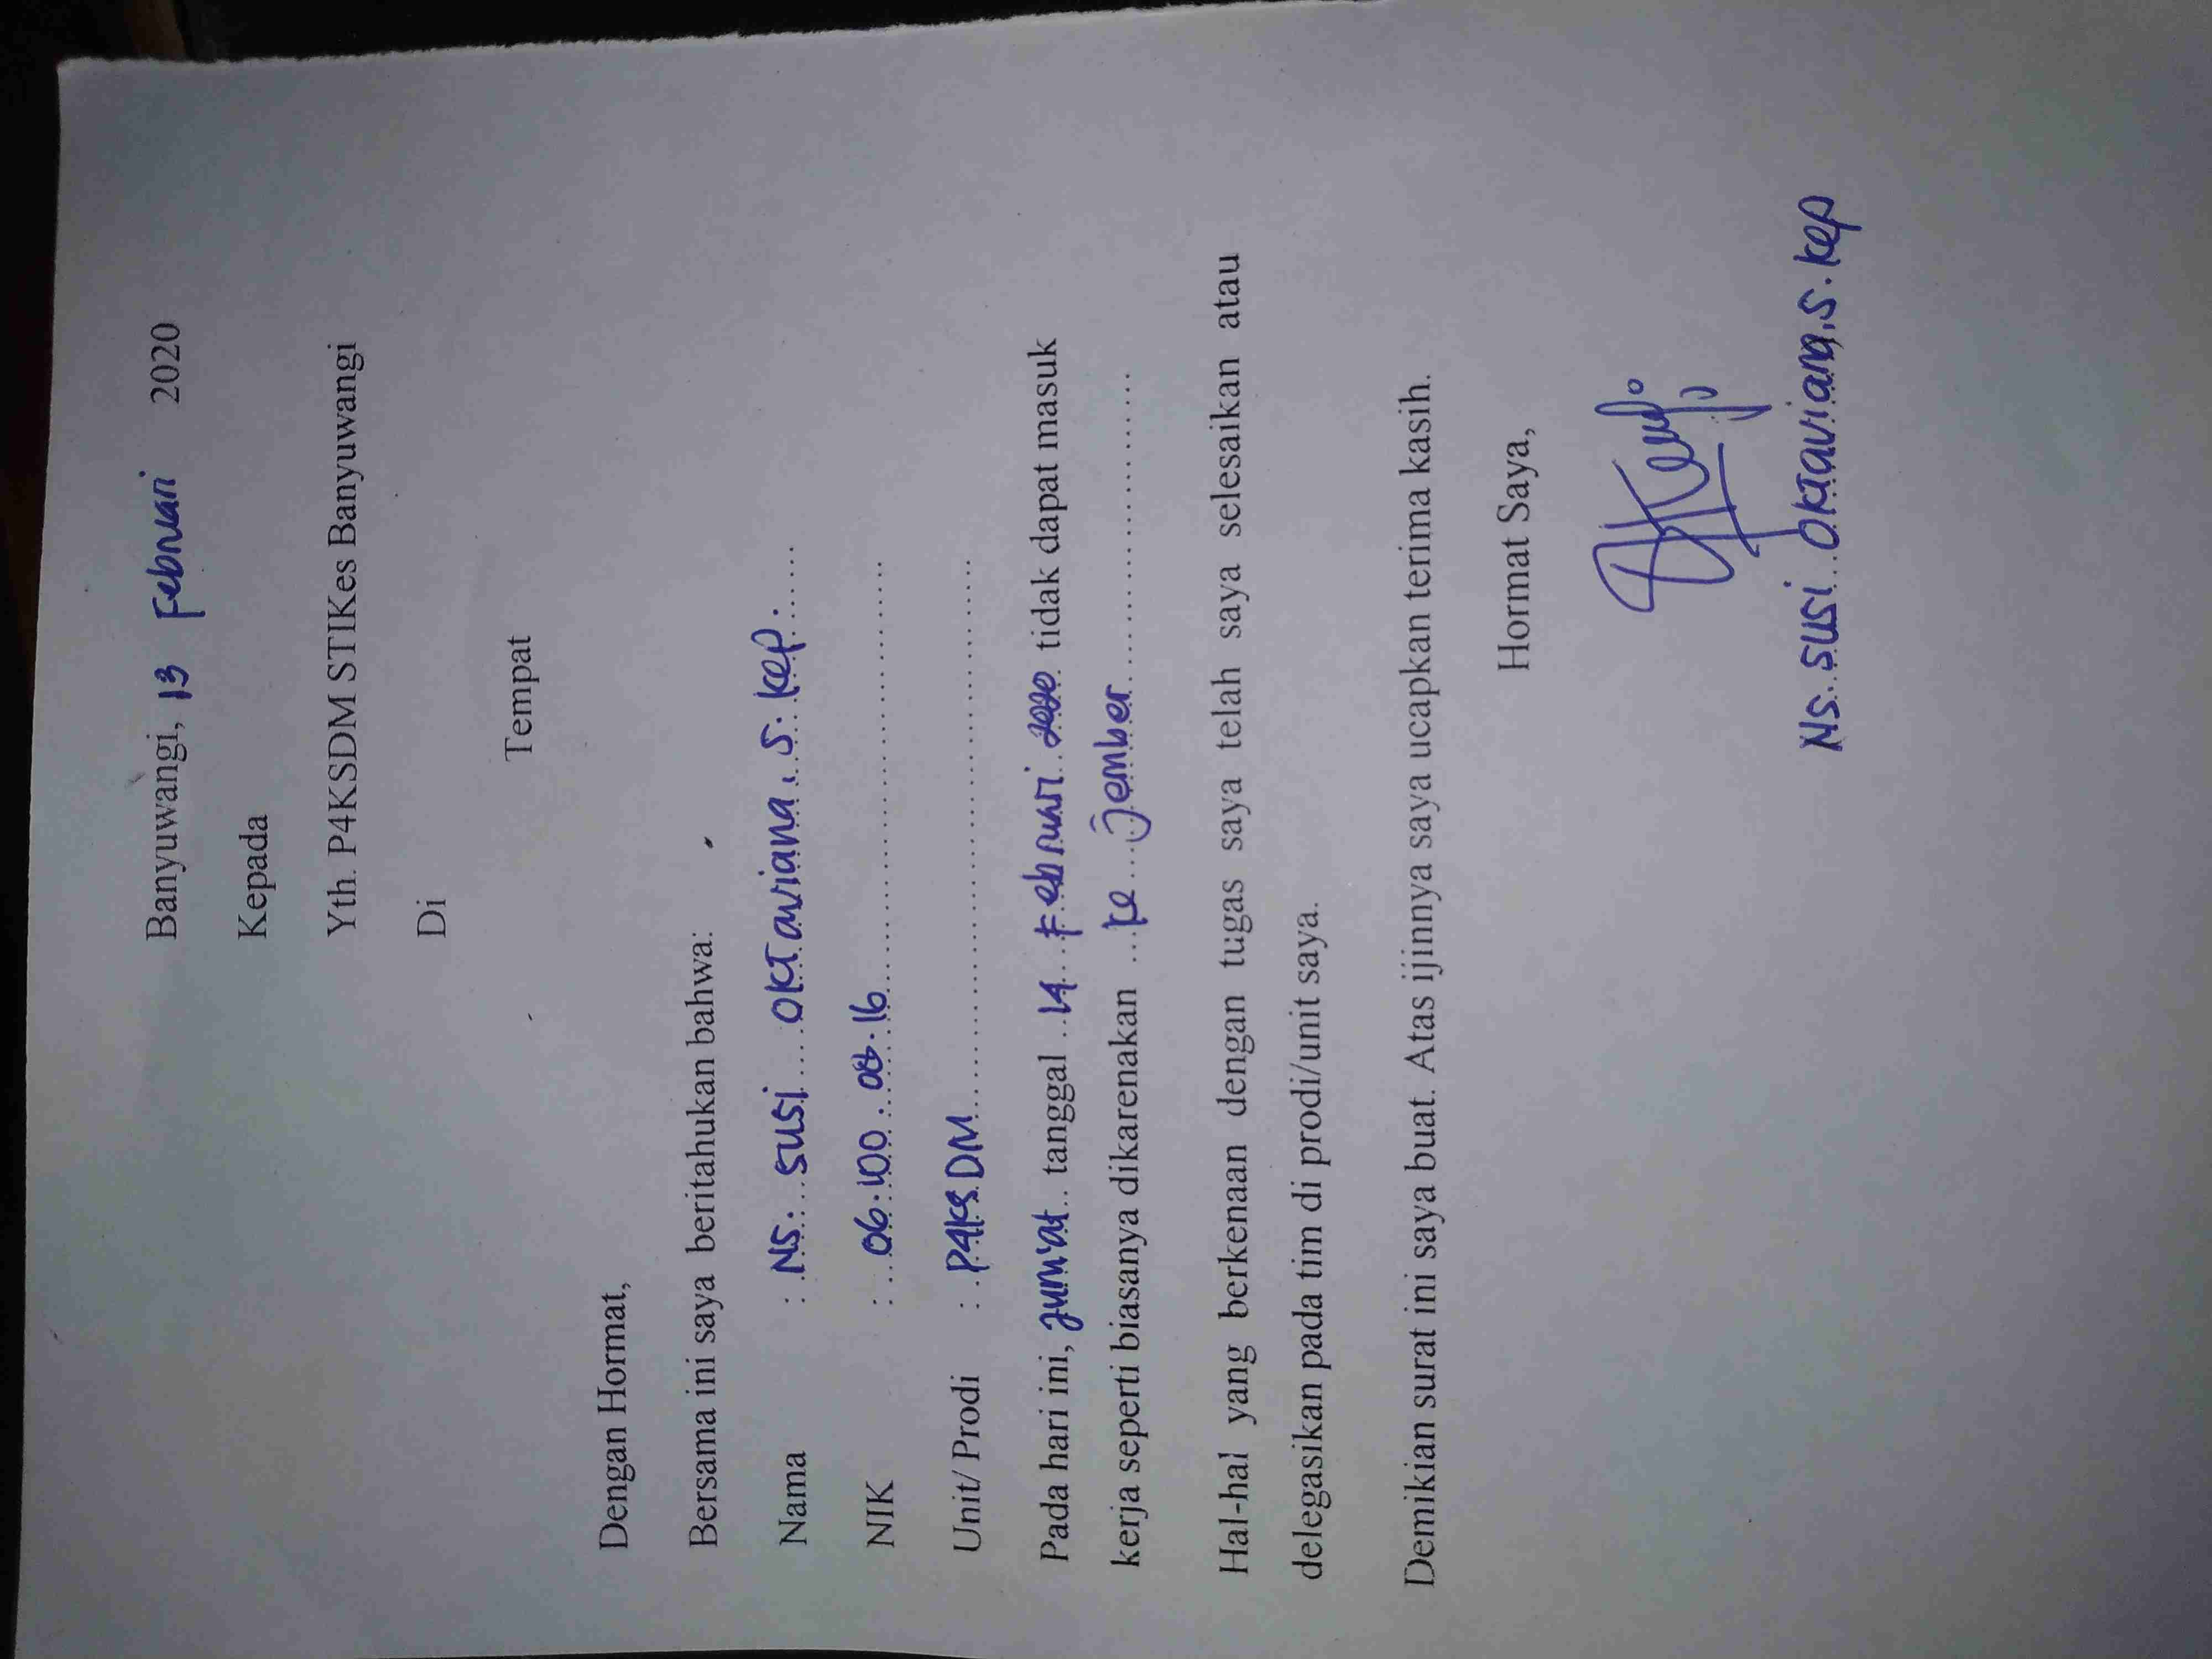 Banyuwangi, 13 Februari 2020
Kepada
Yth. P4KSDM STIKes Banyuwangi
Di
Tempat
Dengan Hormat,
Bersama ini saya beritahukan bahwa:
Nama : Ns. Susi Oktaviana, S. Kep.
NIK : 06.100.08.16
Unit/ Prodi : P4KSDM
Pada hari ini, Jum'at tanggal 14 Februari 2020 tidak dapat masuk
kerja seperti biasanya dikarenakan ke Jember
Hal-hal yang berkenaan dengan tugas saya telah saya selesaikan atau
delegasikan pada tim di prodi/unit saya.
Demikian surat ini saya buat. Atas ijinnya saya ucapkan terima kasih.
Hormat Saya,
Ns. Susi Oktaviana, S. Kep